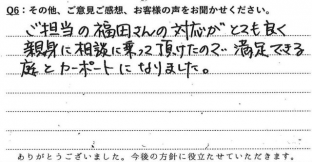 Q6：その他、ご意見ご感想、お客様の声をお聞かせください。
ご担当の福田さんの対応がとても良く
親身に相談に乗って頂けたので満足できる
庭とカーポートになりました。
ありがとうございました。今後の方針に役立たせていただきます。